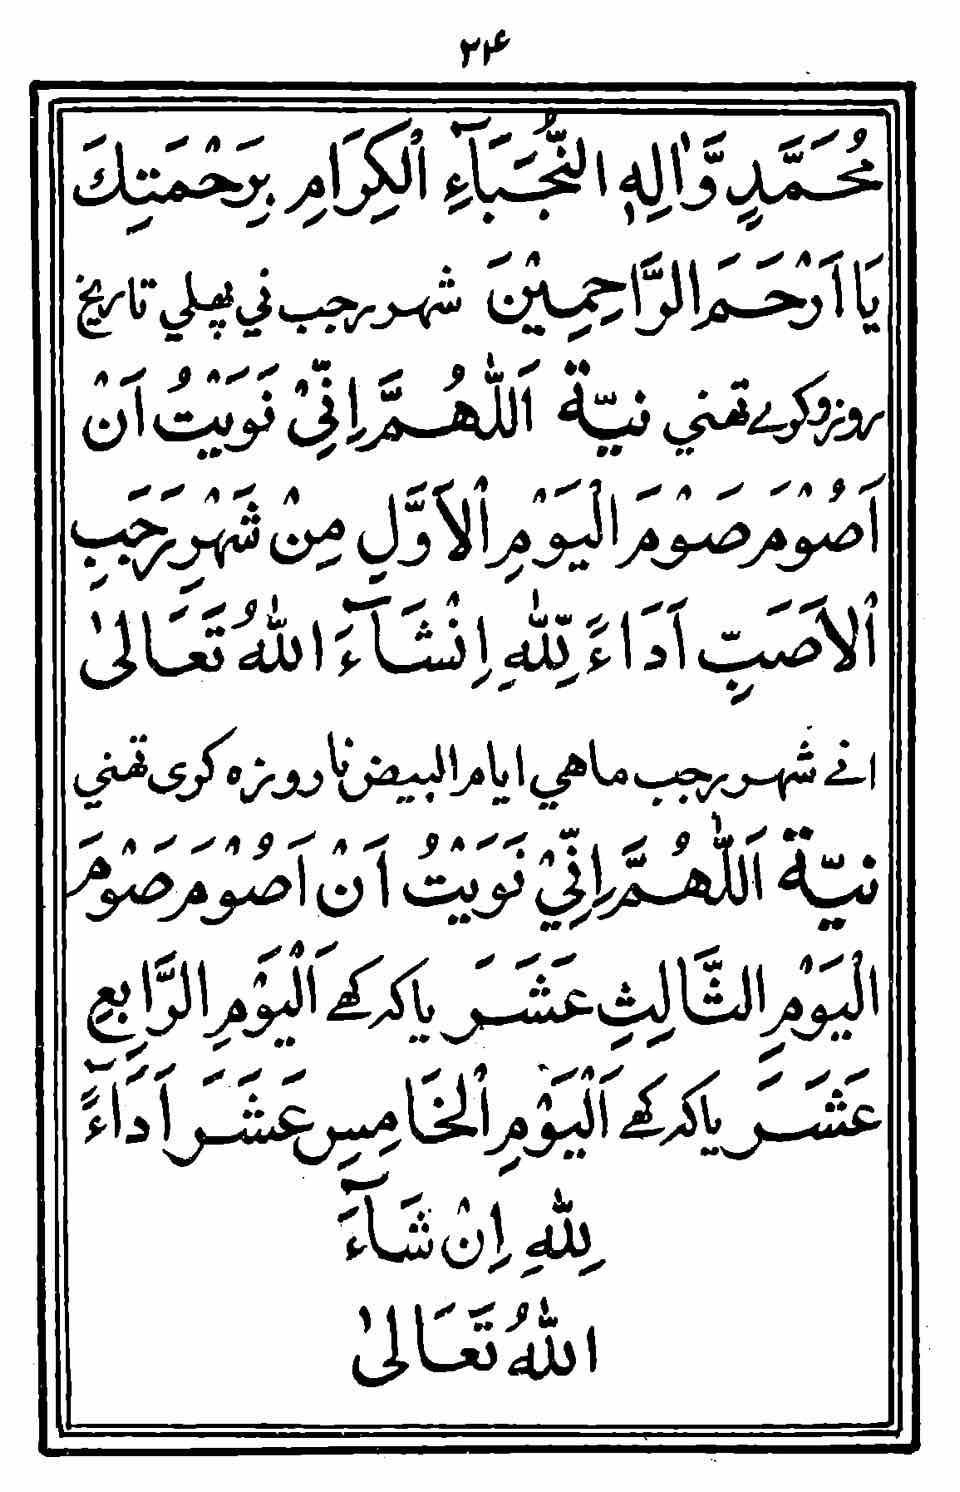 ۲۴
مُحَمَّدٍ وَّاٰلِهِ النُّجَبَآءِ الْكِرَامِ بِرَحْمَتِكَ
يَا اَرْحَمَ الرَّاحِمِيْنَ شهر رجب ني پهلي تاريخ
روزو كرے تهني نيّة اَللّٰهُمَّ اِنِّيْ نَوَيْتُ اَنْ
اَصُوْمَ صَوْمَ الْيَوْمِ الْاَوَّلِ مِنْ شَهْرِ رَجَبِ
الْاَصَبِّ اَدَاءً لِلّٰهِ اِنْشَآءَ اللّٰهُ تَعَالىٰ
انے شهر رجب ماهي ايام البيض نا روزه كرى تهني
نيّة اَللّٰهُمَّ اِنِّيْ نَوَيْتُ اَنْ اَصُوْمَ صَوْمَ
الْيَوْمِ الثَّالِثِ عَشَرَ يا كہ كهے اَلْيَوْمِ الرَّابِعِ
عَشَرَ يا كہ كهے اَلْيَوْمِ الْخَامِسِ عَشَرَ اَدَآءً
لِلّٰهِ اِنْ شَآءَ
اللّٰهُ تَعَالىٰ